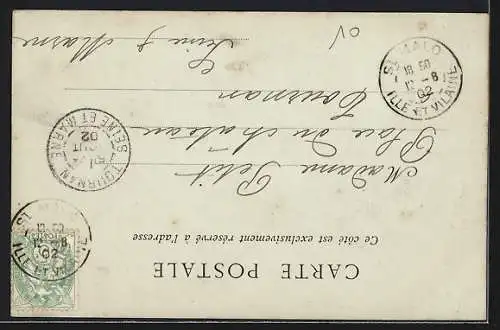 CARTE POSTALE
Ce côté est exclusivement réservé à l'adresse
Madame Petit
Place du château
Tournan
Seine & Marne
ST MALO
18 50
12 - 8
02
ILLE ET VILAINE
TOURNAN
02
SEINE ET MARNE
ST MALO
12 - 8
02
ILLE ET VILAINE